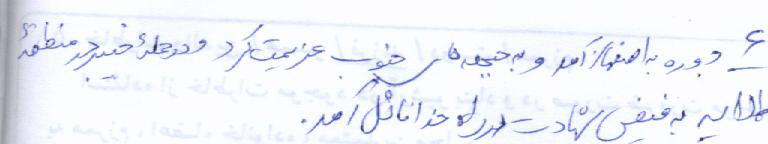 ۶ دوباره به اهواز آمد و به جبهه های جنوب عزیمت کرد و در حمله خیبر در منطقهٔ
طلائیه به فیض شهادت در راه خدا نائل آمد.